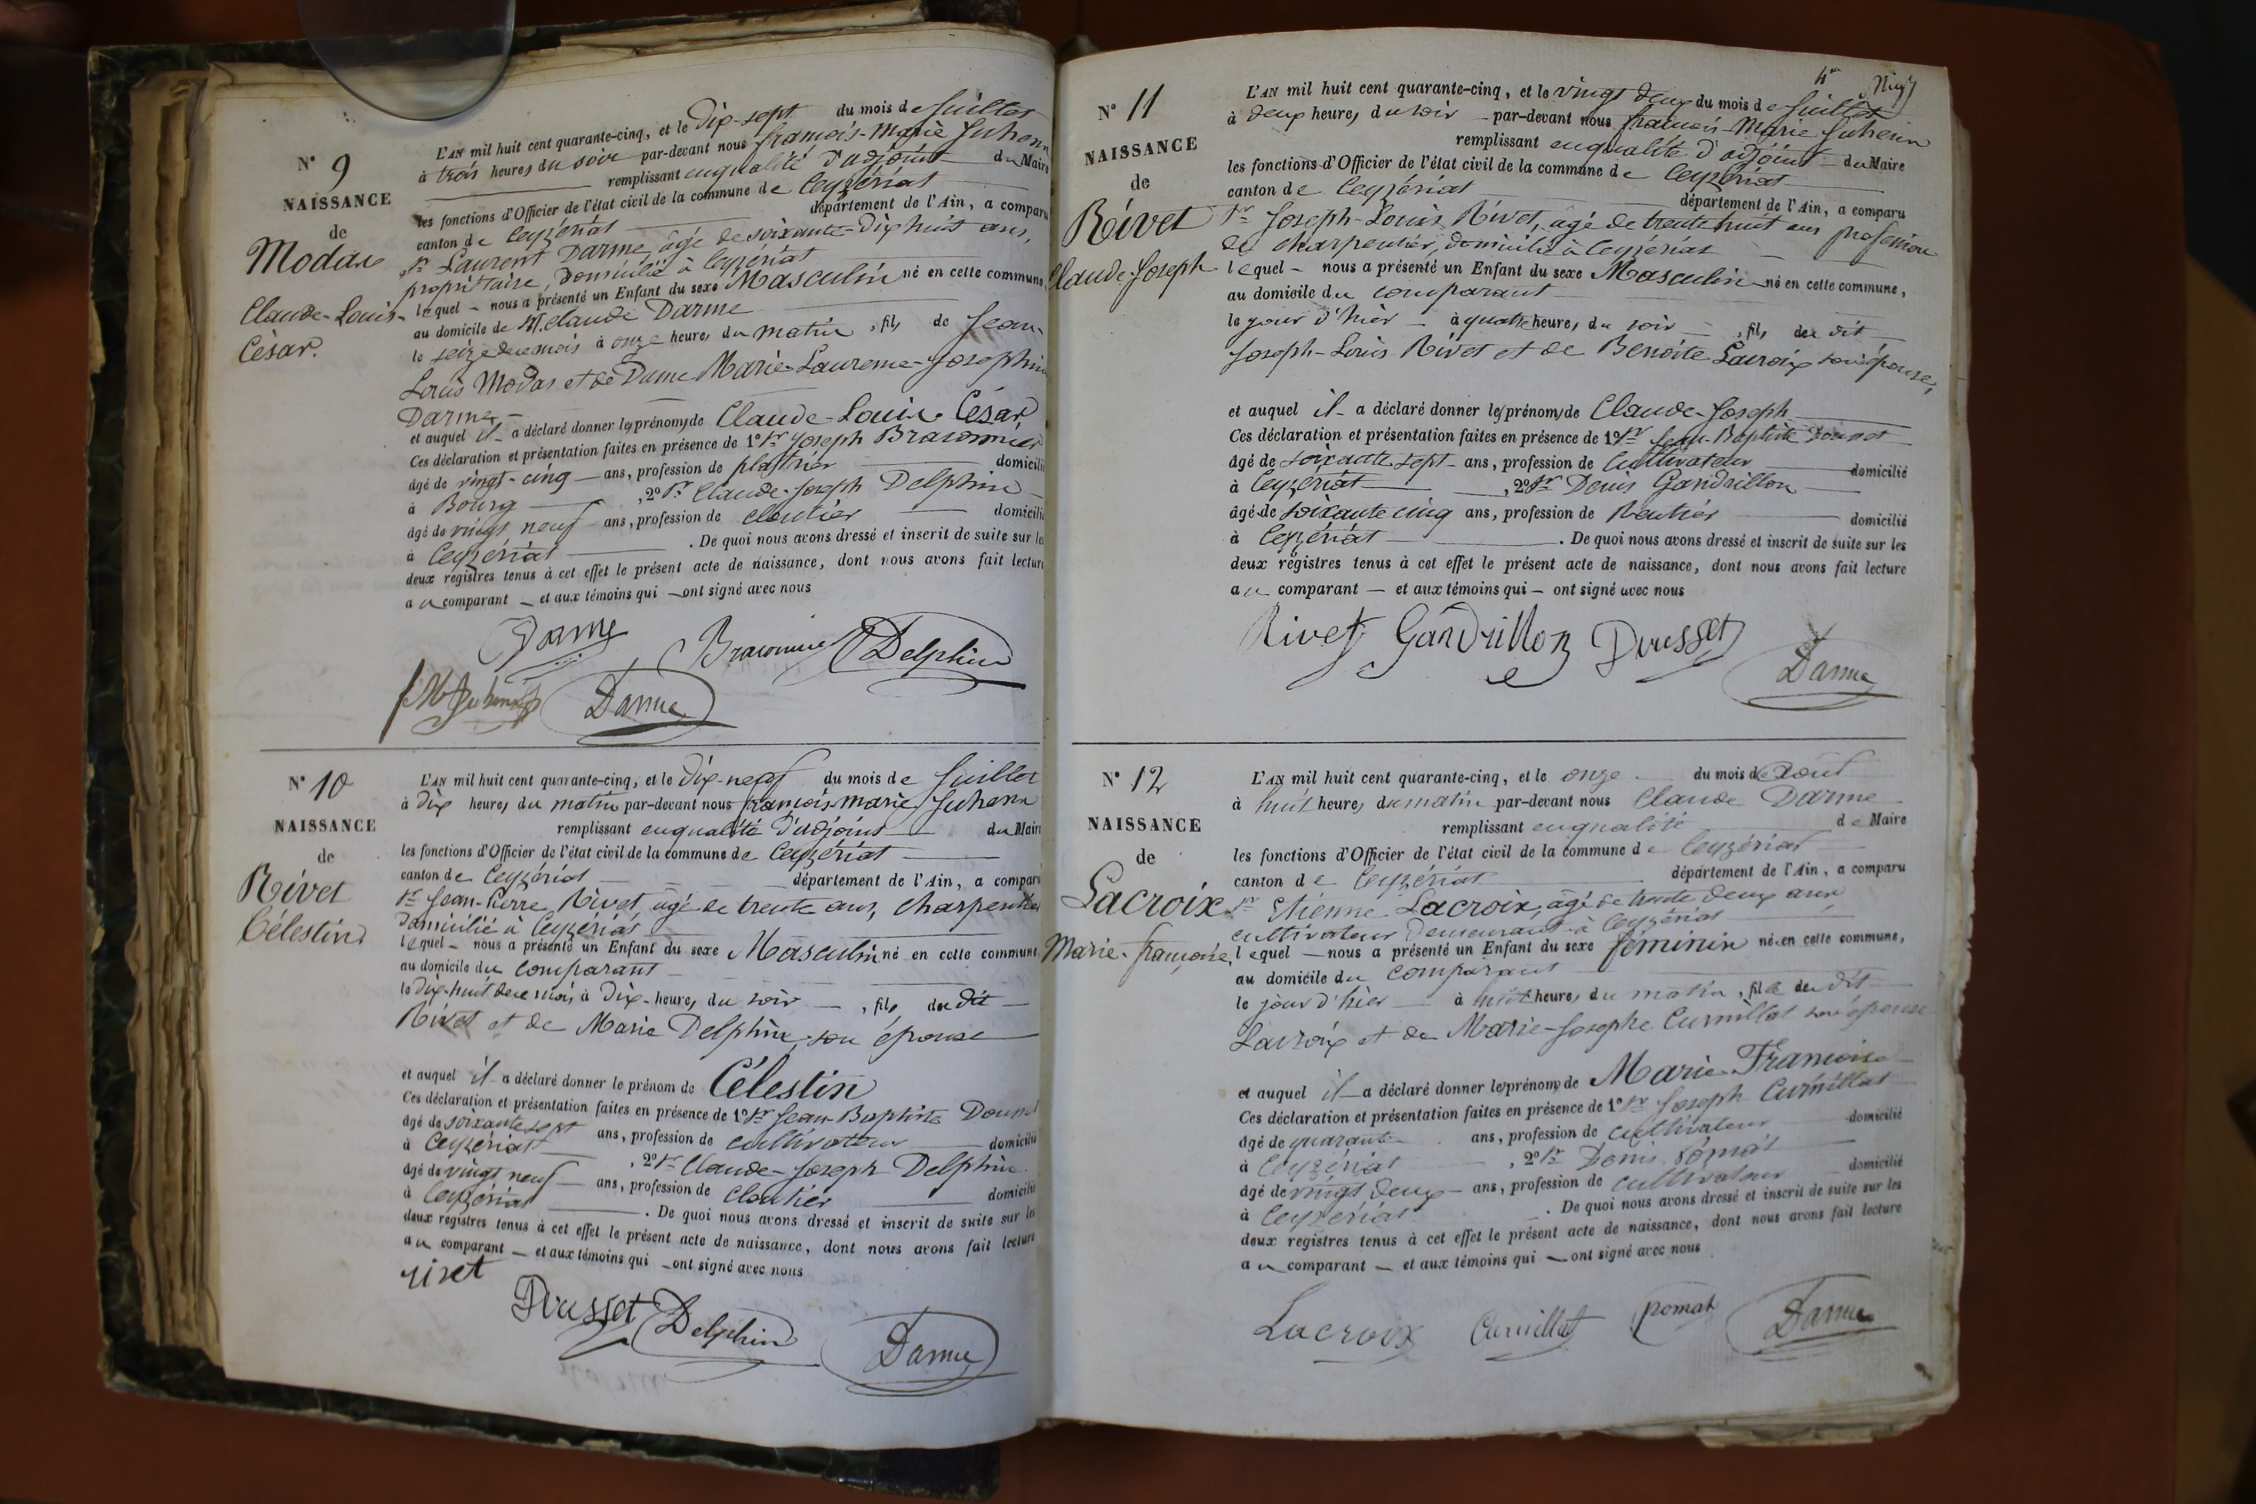 N° 9
NAISSANCE
de
Modas
Claude-Louis-
César.
L'AN mil huit cent quarante-cinq, et le Dix-sept du mois de Juillet
à trois heures du soir par-devant nous françois-Marie Juhenin
remplissant en qualité d'adjoint du Maire
les fonctions d'Officier de l'état civil de la commune de Ceyzériat
canton de Ceyzériat département de l'Ain, a comparu
Sr Laurent Darme, âgé de soixante-Dix huit ans,
propriétaire, Domicilié à Ceyzériat
lequel - nous a présenté un Enfant du sexe Masculin né en cette commune,
au domicile de M. Claude Darme
le seize du mois à onze heures du matin, fils de Jean-
Louis Modas et de Dame Marie-Laurence-Josephine
Darme
et auquel il a déclaré donner les prénoms de Claude-Louis-César
Ces déclaration et présentation faites en présence de 1° Sr Joseph Braconnier
âgé de vingt-cinq ans, profession de plâtrier domicilié
à Bourg, 2° Sr Claude-Joseph Delphin
âgé de vingt neuf ans, profession de cloutier domicilié
à Ceyzériat. De quoi nous avons dressé et inscrit de suite sur les
deux registres tenus à cet effet le présent acte de naissance, dont nous avons fait lecture
au comparant - et aux témoins qui - ont signé avec nous
Darme Braconnier Delphin
fM Juhenin Darme
N° 10
NAISSANCE
de
Rivet
Célestin
L'AN mil huit cent quarante-cinq, et le Dix-neuf du mois de Juillet
à dix heures du matin par-devant nous françois-marie Juhenin
remplissant en qualité d'adjoint du Maire
les fonctions d'Officier de l'état civil de la commune de Ceyzériat
canton de Ceyzériat département de l'Ain, a comparu
Sr Jean-Pierre Rivet, âgé de trente ans, Charpentier
Domicilié à Ceyzériat
lequel - nous a présenté un Enfant du sexe Masculin né en cette commune
au domicile du comparant
le Dix-huit de ce mois à Dix heures du soir, fils du dit
Rivet et de Marie Delphin, son épouse
et auquel il a déclaré donner le prénom de Célestin
Ces déclaration et présentation faites en présence de 1° Sr Jean-Baptiste Dousset
âgé de soixante sept ans, profession de cultivateur domicilié
à Ceyzériat, 2° Sr Claude-Joseph Delphin
âgé de vingt neuf ans, profession de Cloutier domicilié
à Ceyzériat. De quoi nous avons dressé et inscrit de suite sur les
deux registres tenus à cet effet le présent acte de naissance, dont nous avons fait lecture
au comparant - et aux témoins qui - ont signé avec nous
rivet
Dousset Delphin Darme
N° 11
NAISSANCE
de
Rivet
Claude-Joseph
L'AN mil huit cent quarante-cinq, et le vingt deux du mois de Juillet
à deux heures du soir par-devant nous françois-Marie Juhenin
remplissant en qualité d'adjoint du Maire
les fonctions d'Officier de l'état civil de la commune de Ceyzériat
canton de Ceyzériat département de l'Ain, a comparu
Sr Joseph-Louis Rivet, âgé de trente huit ans profession
de charpentier, domicilié à Ceyzériat
lequel - nous a présenté un Enfant du sexe Masculin né en cette commune,
au domicile du comparant
le jour d'hier à quatre heures du soir, fils du dit
Joseph-Louis Rivet et de Benoite Lacroix son épouse,
et auquel il a déclaré donner les prénoms de Claude-Joseph
Ces déclaration et présentation faites en présence de 1° Sr Jean-Baptiste Dousset
âgé de soixante sept ans, profession de Cultivateur domicilié
à Ceyzériat, 2° Sr Denis Gandrillon
âgé de soixante cinq ans, profession de Rentier domicilié
à Ceyzériat. De quoi nous avons dressé et inscrit de suite sur les
deux registres tenus à cet effet le présent acte de naissance, dont nous avons fait lecture
au comparant - et aux témoins qui - ont signé avec nous
Rivet Gandrillon Dousset
Darme
N° 12
NAISSANCE
de
Lacroix
Marie-françoise
L'AN mil huit cent quarante-cinq, et le onze du mois d'Août
à huit heures du matin par-devant nous Claude Darme
remplissant en qualité de Maire
les fonctions d'Officier de l'état civil de la commune de Ceyzériat
canton de Ceyzériat département de l'Ain, a comparu
Sr Etienne Lacroix, âgé de trente deux ans
cultivateur Demeurant à Ceyzériat
lequel - nous a présenté un Enfant du sexe féminin né en cette commune,
au domicile du comparant
le jour d'hier à huit heures du matin, fille du dit
Lacroix et de Marie-Josephe Curnillat son épouse
et auquel il a déclaré donner les prénoms de Marie Françoise
Ces déclaration et présentation faites en présence de 1° Sr Joseph Curnillat
âgé de quarante ans, profession de cultivateur domicilié
à Ceyzériat, 2° Sr Denis Pomat
âgé de vingt deux ans, profession de cultivateur domicilié
à Ceyzériat. De quoi nous avons dressé et inscrit de suite sur les
deux registres tenus à cet effet le présent acte de naissance, dont nous avons fait lecture
au comparant - et aux témoins qui - ont signé avec nous
Lacroix Curnillat pomat Darme